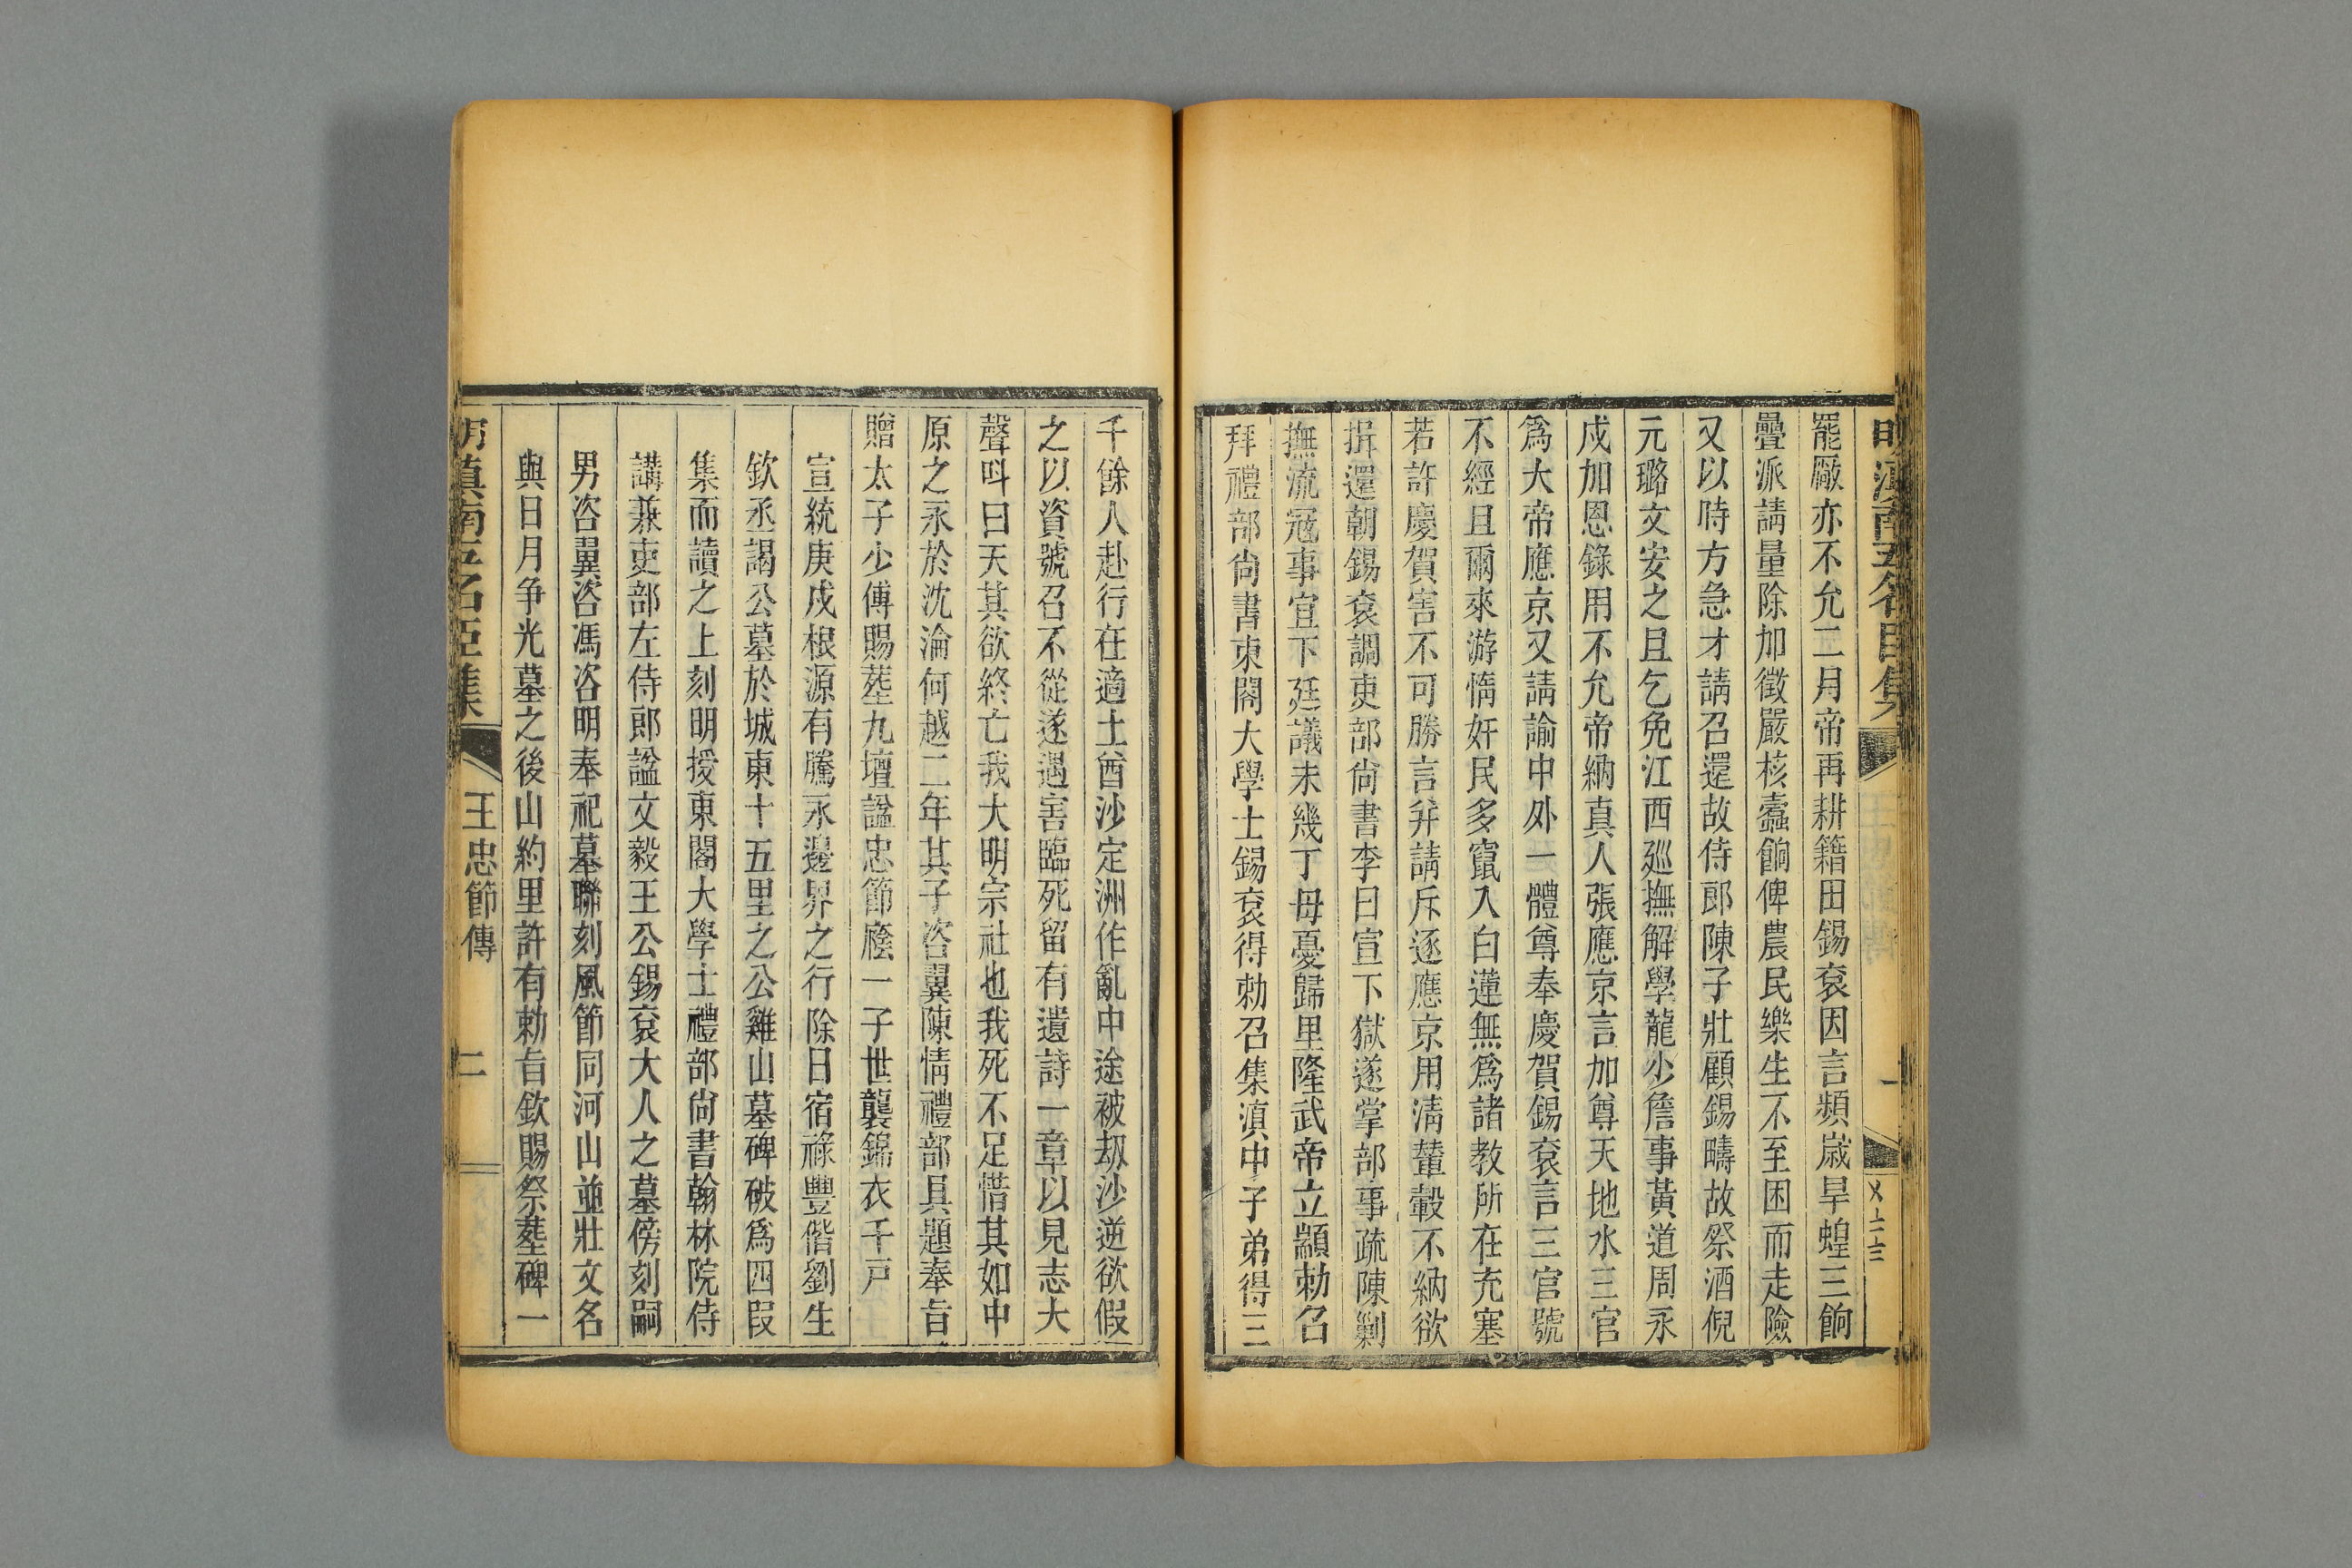 明滇南五名臣集
一
罷厰亦不允二月帝再耕籍田錫袞因言頻歲旱蝗三餉
疊派請量除加徵嚴核蠹餉俾農民樂生不至困而走險
又以時方急才請召還故侍郎陳子壯顧錫疇故祭酒倪
元璐文安之且乞免江西廵撫解學龍少詹事黃道周永
戍加恩錄用不允帝納真人張應京言加尊天地水三官
爲大帝應京又請諭中外一體尊奉慶賀錫袞言三官號
不經且爾來游惰奸民多竄入白蓮無爲諸教所在充塞
若許慶賀害不可勝言并請斥逐應京用淸輦轂不納欲
揖還朝錫袞調吏部尙書李日宣下獄遂掌部事疏陳剿
撫流冦事宜下廷議未幾丁毋憂歸里隆武帝立顓勅召
拜禮部尙書東閣大學士錫袞得勅召集滇中子弟得三
千餘人赴行在適土酋沙定洲作亂中途被刼沙逆欲假
之以資號召不從遂遇害臨死留有遺詩一章以見志大
聲呌曰天其欲終亡我大明宗社也我死不足惜其如中
原之永於沈淪何越二年其子咨翼陳情禮部具題奉旨
贈太子少傅賜塟九壇諡忠節廕一子世襲錦衣千戸
宣統庚戍根源有騰永邊界之行除日宿祿豐偕劉生
欽丞謁公墓於城東十五里之公雞山墓碑破爲四叚
集而讀之上刻明授東閣大學士禮部尙書翰林院侍
講兼吏部左侍郎諡文毅王公錫袞大人之墓傍刻嗣
男咨翼咨馮咨明奉祀墓聯刻風節同河山並壯文名
與日月争光墓之後山約里許有勅旨欽賜祭塟碑一
明滇南五名臣集
王忠節傳
二